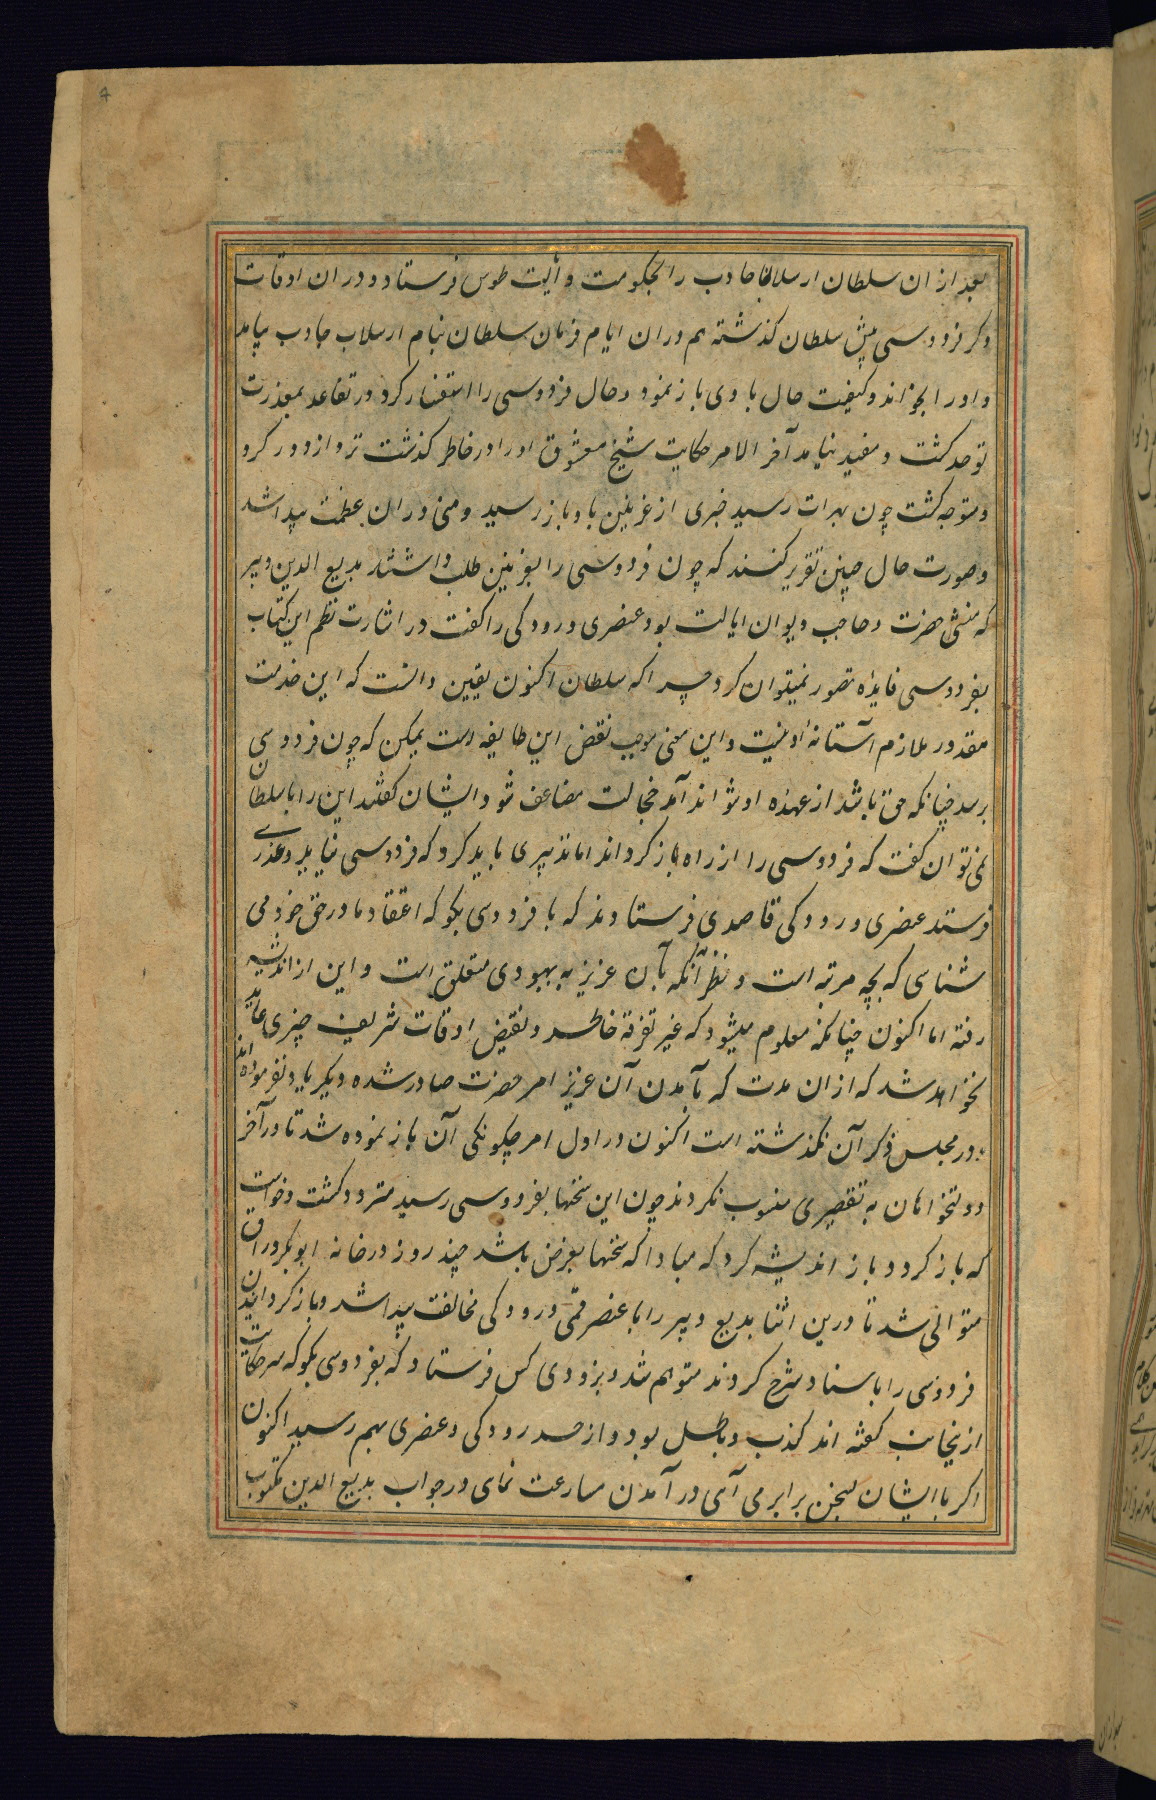 بعد از ان سلطان ارسلان جاذب را بحکومت ولایت طوس فرستاد و در ان اوقات
ذکر فردوسی پیش سلطان کذشته هم در ان ایام فرمان سلطان بنام ارسلان جاذب بیامد
و او را بخواند و کیفیت حال با وی باز نمود و حال فردوسی را استفسار کرد و در تقاعد بمعذرت
کشت و مفید نیامد آخر الامر حکایت شیخ معشوق او را در خاطر کذشت
و متوجه کشت چون بهرات رسید خبری از غزنین با و باز رسید و منی در ان عظمت پیدا شد
و صورت حال چنین تقریر کنند که چون فردوسی را بغزنین طلب داشتند بدیع الدین دبیر
که منشی حضرت و صاحب دیوان ایالت بود عنصری و رودکی را کفت در اشارت نظم این کتاب
بفردوسی فایده تصور نمیتوان کرد چرا که سلطان اکنون یقین دانست که این خدمت
مقدور ملازم آستانه او نیست و این معنی موجب نقض این طایفه است یمکن که چون فردوسی
برسد چنانکه حق باشد از عهده او نتواند آمد خجالت مضاعف شود ایشان کفتند این را با سلطان
نمی توان کفت که فردوسی را از راه باز کرداند اما تدبیری باید کرد که فردوسی نیاید و عذری
فرستد عنصری و رودکی قاصدی فرستادند که با فردوسی بکو که اعتقاد ما در حق خود می
شناسی که بچه مرتبه است و نظر آنکه بآن عزیز به بهبودی متعلق است و این از اندیشه
رفته اما اکنون چنانکه معلوم میشود که غیر تفرقه خاطر و نقیض اوقات شریف چیزی عاید
نخواهد شد که از ان مدت که بآمدن آن عزیز امر حضرت صادر شده دیکر یاد نفرموده اند
و در مجلس ذکر آن نکذشته است اکنون در اول امر چکونکی آن باز نموده شد تا در آخر
دولتخواهان به تقصیری منسوب نکردند چون این سخنها بفردوسی رسید متردد کشت و خواست
که باز کردد و باز اندیشه کرد که مبادا که سخنها بغرض باشد چند روز در خانه ابوبکر وراق
متوالی شد تا درین اثنا بدیع دبیر را با عنصر و رودکی مخالفت پیدا شد و باز کردانیدن
فردوسی را با سناد شرح کردند متوهم شد و بزودی کس فرستاد که بفردوسی بکو که هر حکایت
از نجانب کفته اند کذب و باطل بود و از حسد رودکی و عنصری بهم رسید اکنون
اکر با ایشان بسخن برابر می آمی در آمدن مسارعت نمای و در جواب بدیع الدین مکتوب